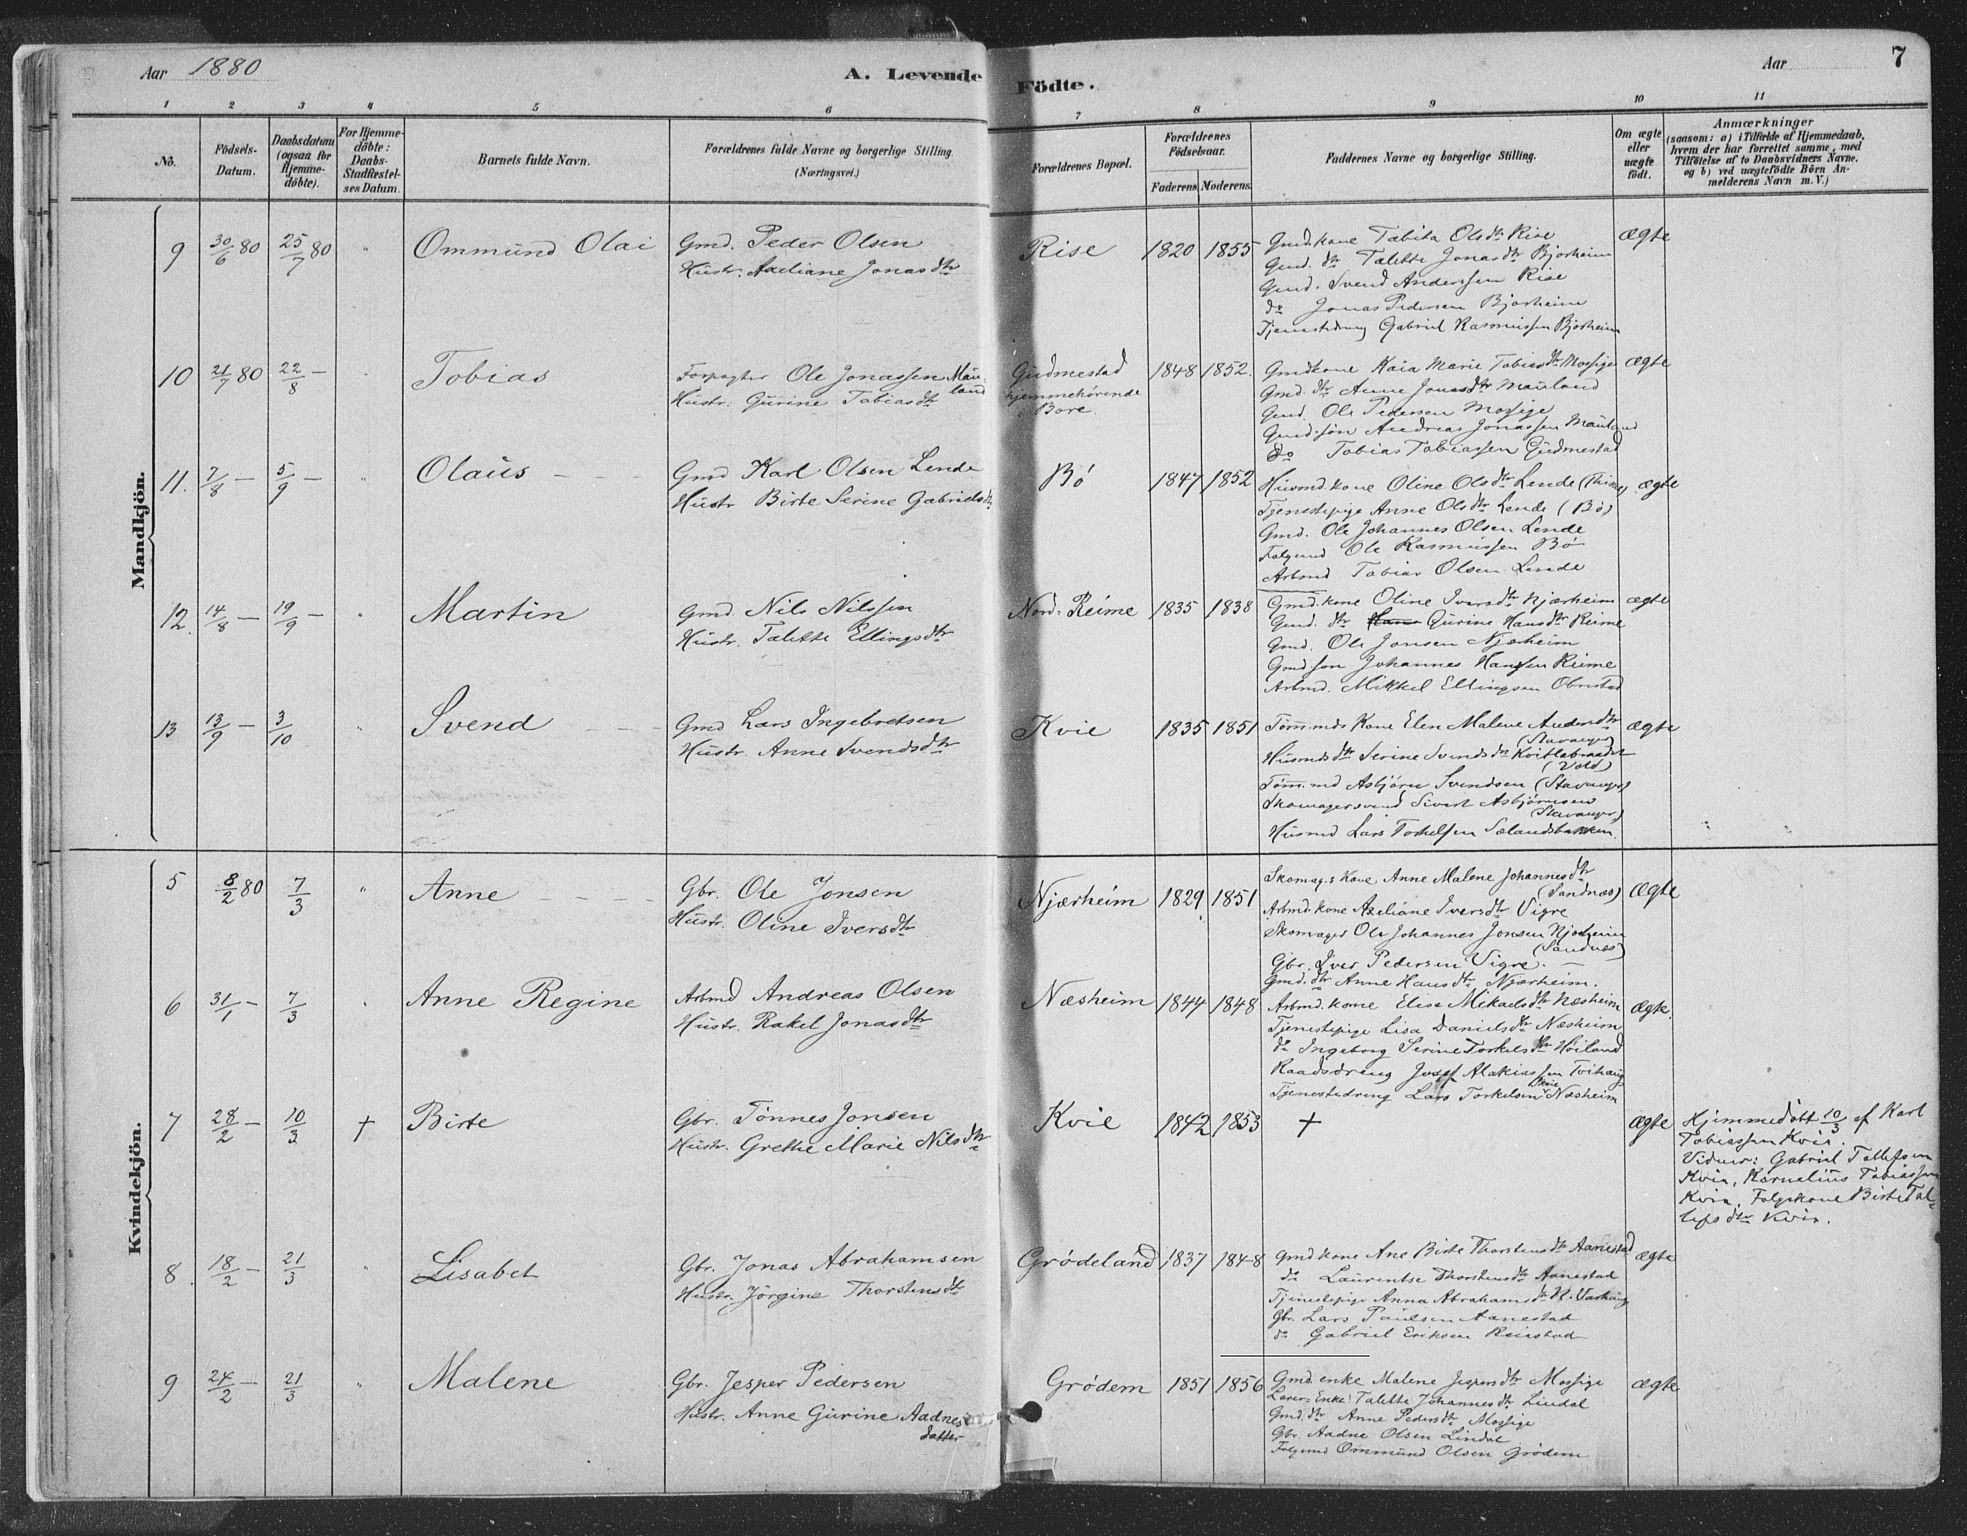 Aar 1880
A. Levende Födte.
Aar
7
1 2 3 4 5 6 7 8 9 10 11
No.
Födsels-Datum.
Daabsdatum (ogsaa for Hjemme-döbte).
For Hjemme-döbte: Daabs-Stadfæstel-ses Datum.
Barnets fulde Navn.
Forældrenes fulde Navne og borgerlige Stilling. (Næringsvei.)
Forældrenes Bopæl.
Forældrenes Födselsaar.
Faderens Moderens
Faddernes Navne og borgerlige Stilling.
Om ægte eller uægte födt.
Anmærkninger
(saasom: a) i Tilfælde af Hjemmedaab,
hvem der har forrettet samme, med
Tilföielse af to Daabsvidners Navne.
og b) ved uægtefödte Börn An-
melderens Navn m. V.)
Mandkjön.
9 30/6 80 25/7 80 " Ommund Olai
Gmd. Peder Olsen
Hustr. Axeliane Jonasdtr
Rise 1820 1855
Gmd. kone Tabita Olsdtr Rise
Gmd. dtr Talette Jonasdtr Bjorheim
Gmd. Svend Anderssen Rise
do Jonas Pedersen Bjorheim
Tjenestedreng Gabriel Rasmussen Bjorheim
Ægte
10 21/7 80 22/8 — " Tobias
Forpagter Ole Jonassen Mau-
land
Hustr. Gurine Tobiasdtr
Gudmestad
hjemmehørende
i Bore.
1848 1852.
Gmdkone Kaia Marie Tobiasdtr Mossige
Gmd. dtr Anne Jonasdtr Mauland
Gmd. Ole Pedersen Mossige
Gmd. søn Andreas Jonassen Mauland
do Tobias Tobiassen Gudmestad
Ægte
11. 7/8 — 5/9 — " Olaus
Gmd Karl Olsen Lende
Hustr Birte Serine Gabrielsdtr
Bø 1847 1852
Husmd. kone Oline Olsdtr Lende (Thime)
Tjenestepige Anne Olsdtr Lende (Bø)
Gmd. Ole Johannes Olsen Lende
Folgmd Ole Rasmussen Bø
Arbmd Tobias Olsen Lende
Ægte
12. 14/8 — 19/9 — " Martin
Gmd Nils Nilssen
Hustr. Talette Ellingsdtr
Nord-Reime 1835 1838
Gmd. kone Oline Iversdtr Njærheim
Gmd. dtr Gurine Hansdtr Reime
Gmd. Ole Jonsen Njærheim
Gmd søn Johannes Hanssen Reime
Arbmd. Mikkel Ellingsen Obrestad
Ægte
13 13/9 — 3/10 " Svend
Gmd Lars Ingebretsen
Hustr Anne Svendsdtr
Kvie 1835 1851
Tømmds Kone Elen Malene Andersdtr
(Stavanger)
Husmds dtr Serine Svendsdtr
(Vold)
Tømmmd Asbjørn Svendsen (Stavanger)
Skomagersvend Sivert Asbjørnsen
(Stavanger)
Husmd Lars Torkelsen Sælandsbakken
Ægte
Kvindekjön.
5 8/2 80 7/3 " Anne
Gbr. Ole Jonsen
Hustr. Oline Iversdtr
Njærheim 1829 1851
Skomag.s Kone Anne Malene Johannesdtr
(Sandnæs)
Arbmd. kone Axeliane Iversdtr Vigre
Skomager Ole Johannes Jonsen Njærheim
(Sandnæs)
Gbr. Iver Pedersen Vigre. —
Gmd. dtr Anne Hansdtr Njærheim.
Ægte
6 31/1 — 7/3 " Anne Regine
Arbmd Andreas Olsen
Hustr. Rakel Jonasdtr
Næsheim 1844 1848
Arbmd. kone Elisa Mikaelsdtr Næsheim
Tjenestepige Lisa Danielsdtr Næsheim
do Ingeborg Serine Torkelsdtr Høiland
Raadsdreng Josef Malakiassen Tvihaug
Kvie
Tjenestedreng Lars Torkelsen Næsheim
Ægte.
7 28/2 — 10/3 † Birte
Gbr. Tønnes Jonsen
Hustr. Grethe Marie Nilsdtr
Kvie 1842 1853 † Ægte
Hjemmedøbt 10/3 af Karl
Tobiassen Kvie.
Vidner: Gabriel Tollefsen
Kvia, Kornelius Tobiassen
Kvia, Folgekone Birte Tol-
lefsdtr Kvia.
8. 18/2 — 21/3 " Lisabet
Gbr. Jonas Abrahamsen
Hustr. Jørgine Thorstensdtr
Grødeland 1837 1848
Gmdkone Ane Birte Thorstensdtr Aanestad
do Laurentse Thorstensdtr Aanestad
Tjenestepige Anna Abrahamsdtr N. Varhaug
Gbr. Lars Paulsen Aanestad
do Gabriel Eriksen Reiestad
Ægte
9 24/2 — 21/3 " Malene
Gbr. Jesper Pedersen
Hustr. Anne Gurine Aadnes
datter
Grødem 1851 1856
Gmd enke Malene Jespersdtr Mossige
Lærer-Enke Talette Johannesdtr Lindal
Gmd. dtr Anne Pedersdtr Mossige
Gbr. Aadne Olsen Lindal
Folgmd Ommund Olsen Grødem
Ægte